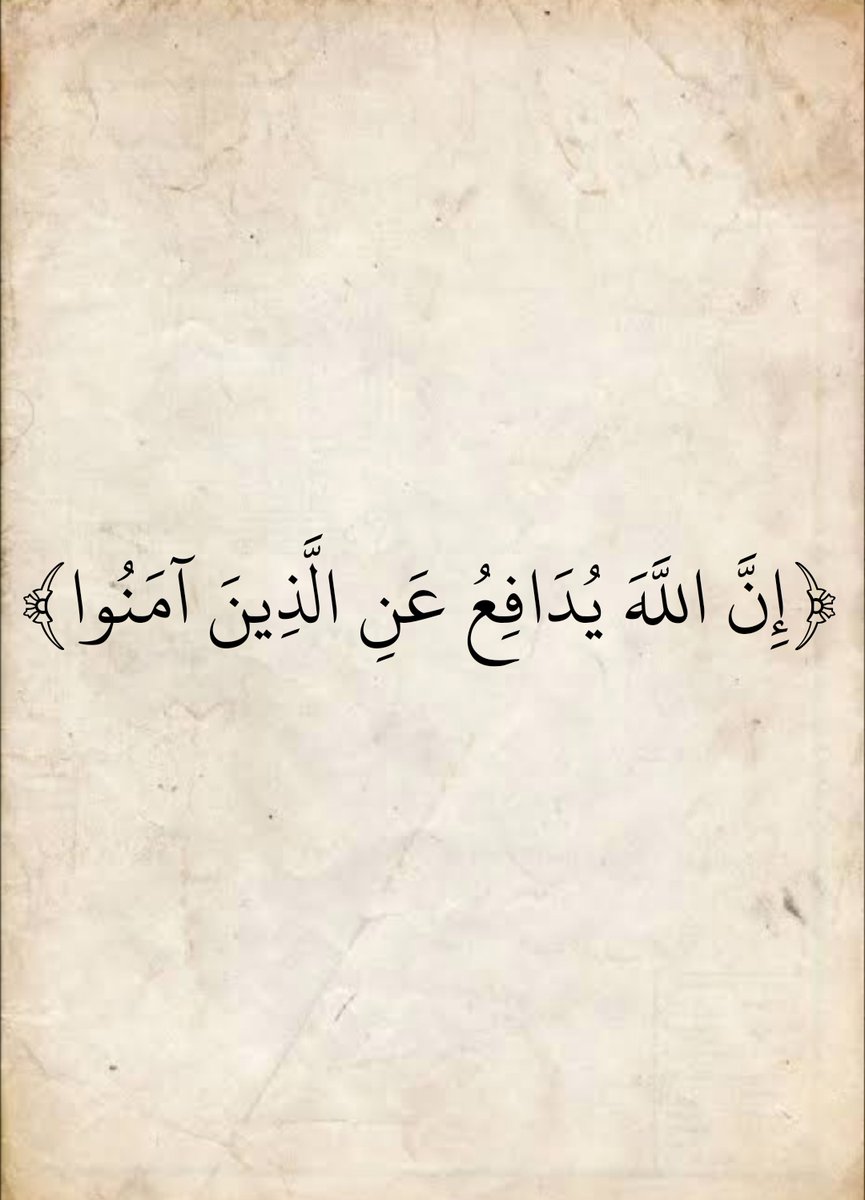 ﴿إِنَّ اللَّهَ يُدَافِعُ عَنِ الَّذِينَ آمَنُوا﴾